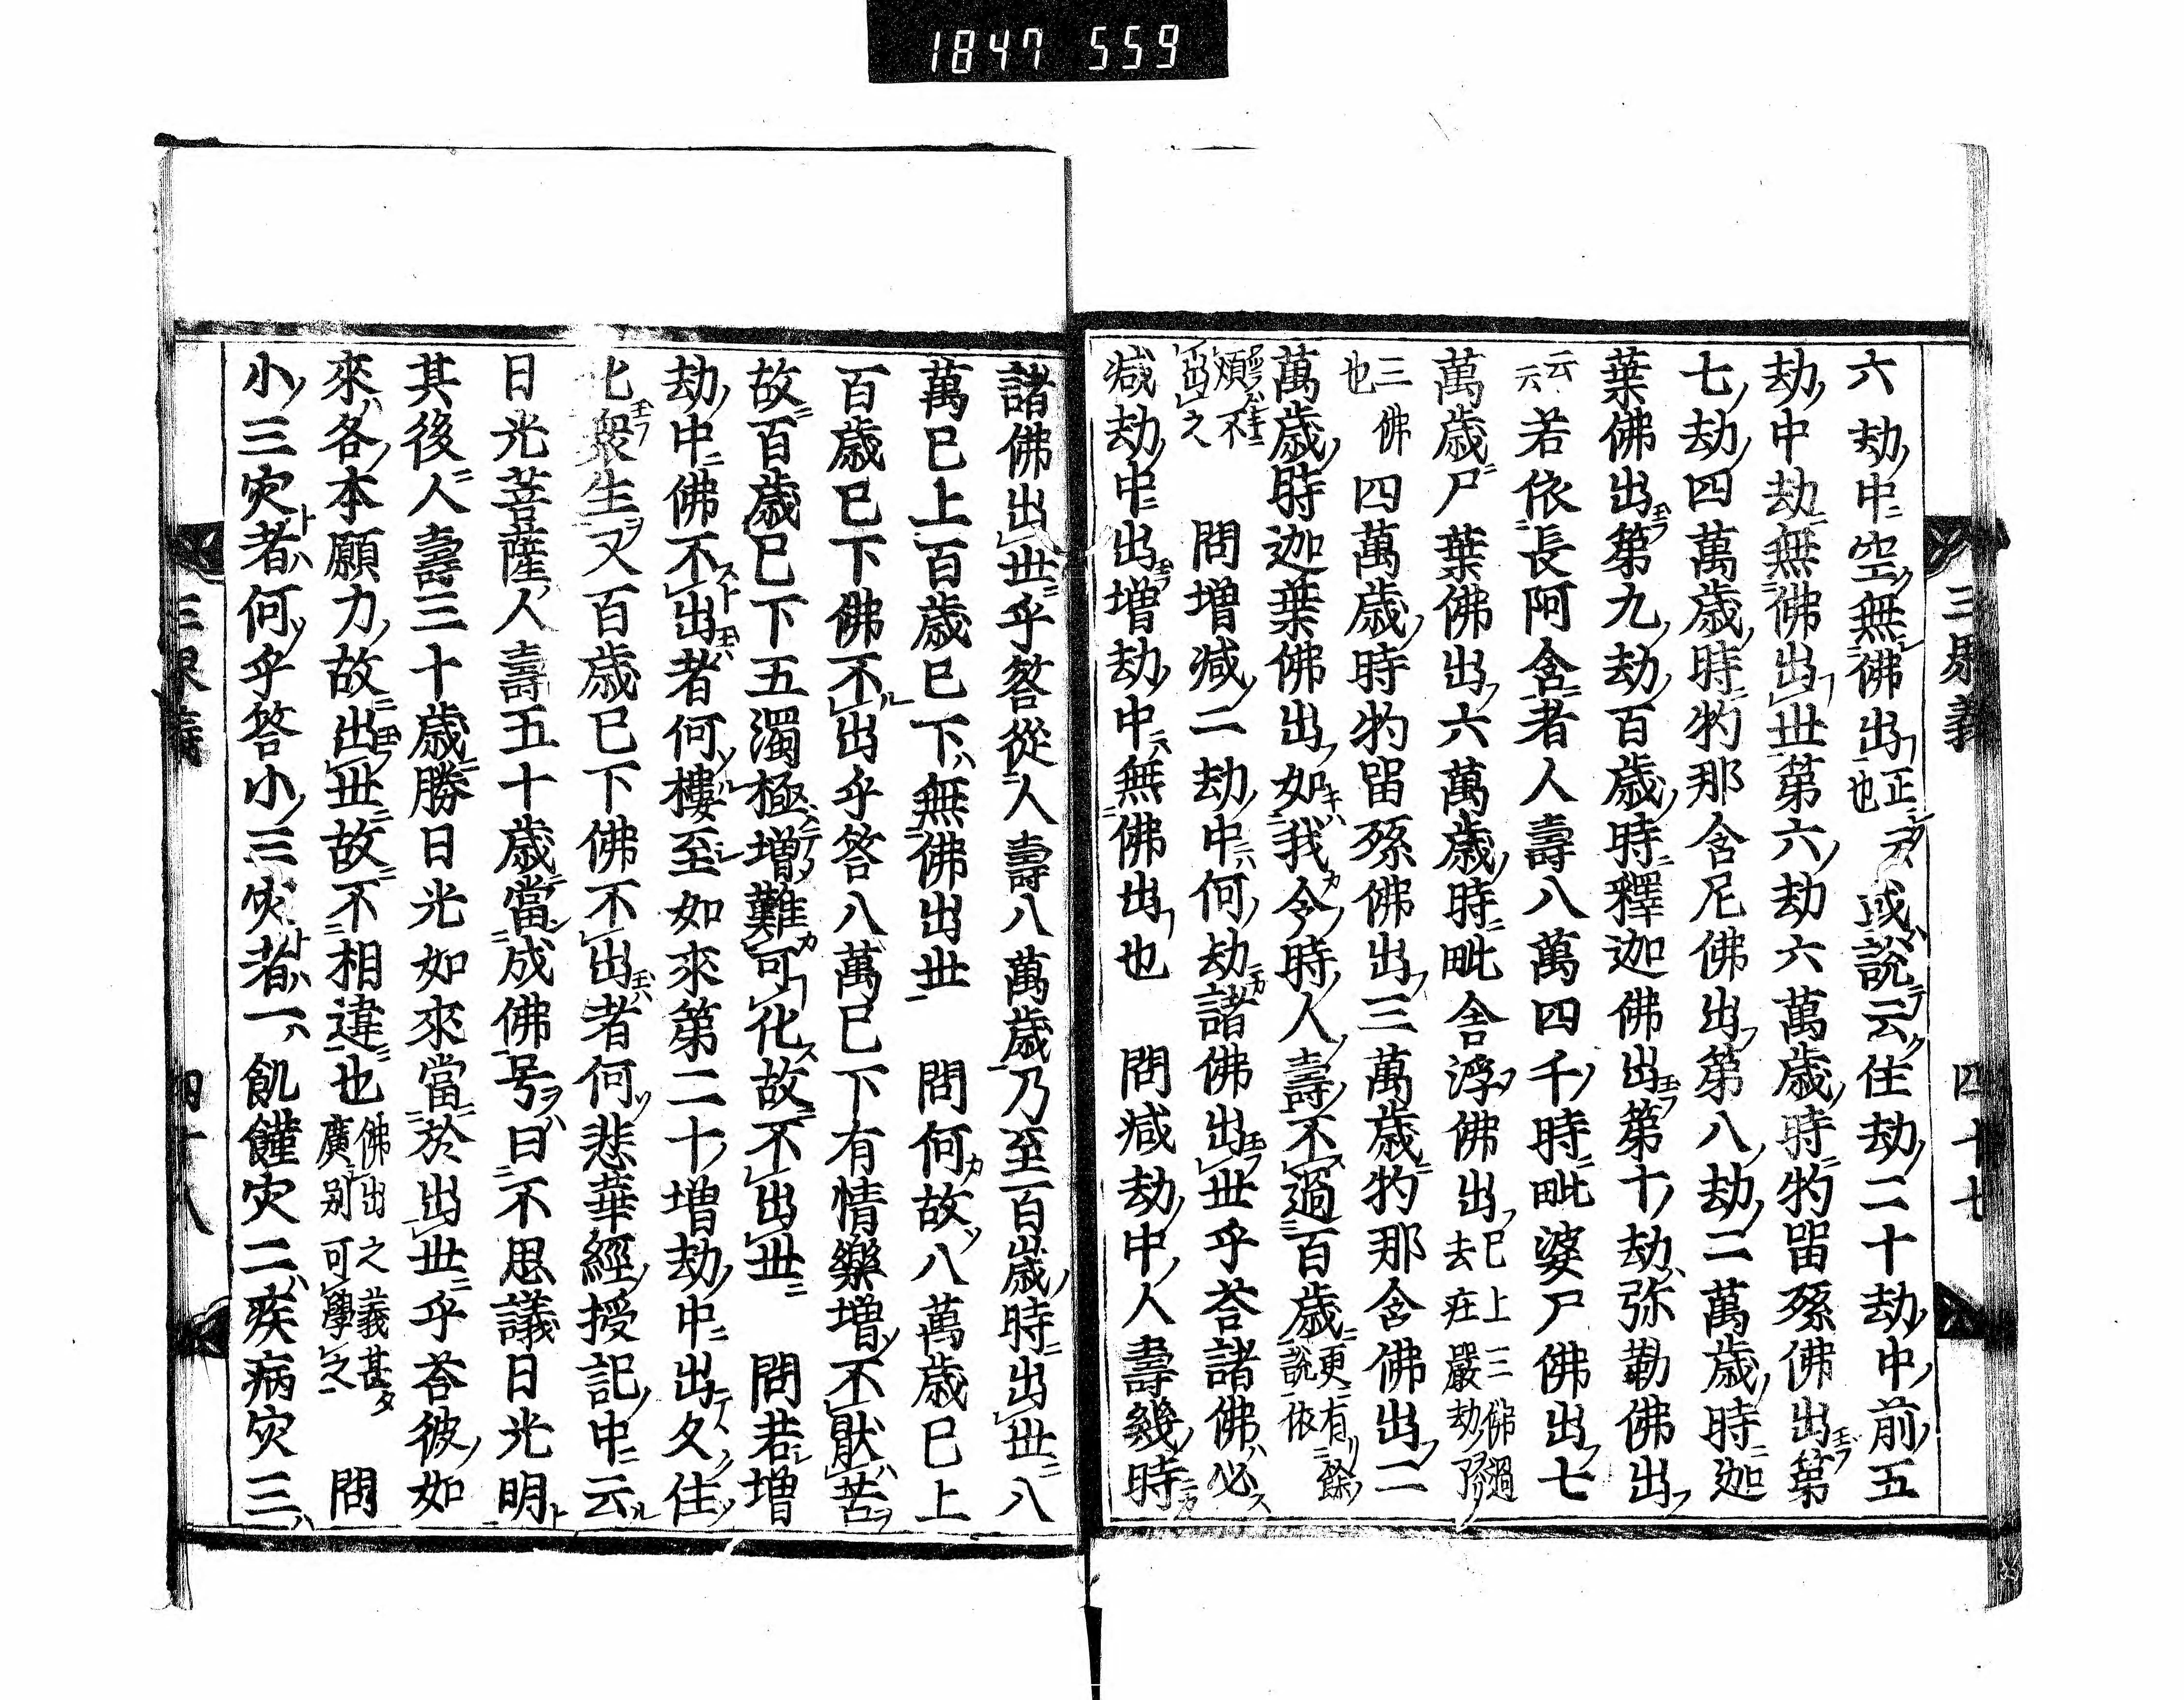 1847 559
六劫中空無佛出正也云云或說云住劫二十劫中前五
劫中劫無佛出世第六劫六萬歲時牞留孫佛出第
七劫四萬歲時牞那含尼佛出第八劫二萬歲時迦
葉佛出第九劫百歲時釋迦佛出第十劫弥勒佛出
云云若依長阿含者人壽八萬四千時毗婆尸佛出七
萬歲尸葉佛出六萬歲時毗舍浮佛出已上三佛過去莊嚴劫
三佛也四萬歲時牞留孫佛出三萬歲牞那含佛出二
萬歲時迦葉佛出如我今時人壽不過百歲更有餘說依
煩不出之 問增減二劫中何劫諸佛出世乎荅諸佛必
減劫中出增劫中無佛出也 問減劫中人壽幾時
四十七
諸佛出世乎答從人壽八萬歲乃至百歲時出世八
萬已上百歲已下無佛出世 問何故八萬歲已上
百歲已下佛不出乎答八萬已下有情樂增不猒苦
故百歲已下五濁極增難可化故不出世 問若增
劫中佛不出者何樓至如來第二十增劫中出夂住
化衆生又百歲已下佛不出者何悲華經授記中云
日光菩薩人壽五十歲當成佛号曰不思議日光明
其後人壽三十歲勝日光如來當於出世乎荅彼如
來各本願力故出世故不相違也佛出之義甚夕廣別可學之 問
小三灾者何乎答小三灾者一飢饉灾二疾病灾三